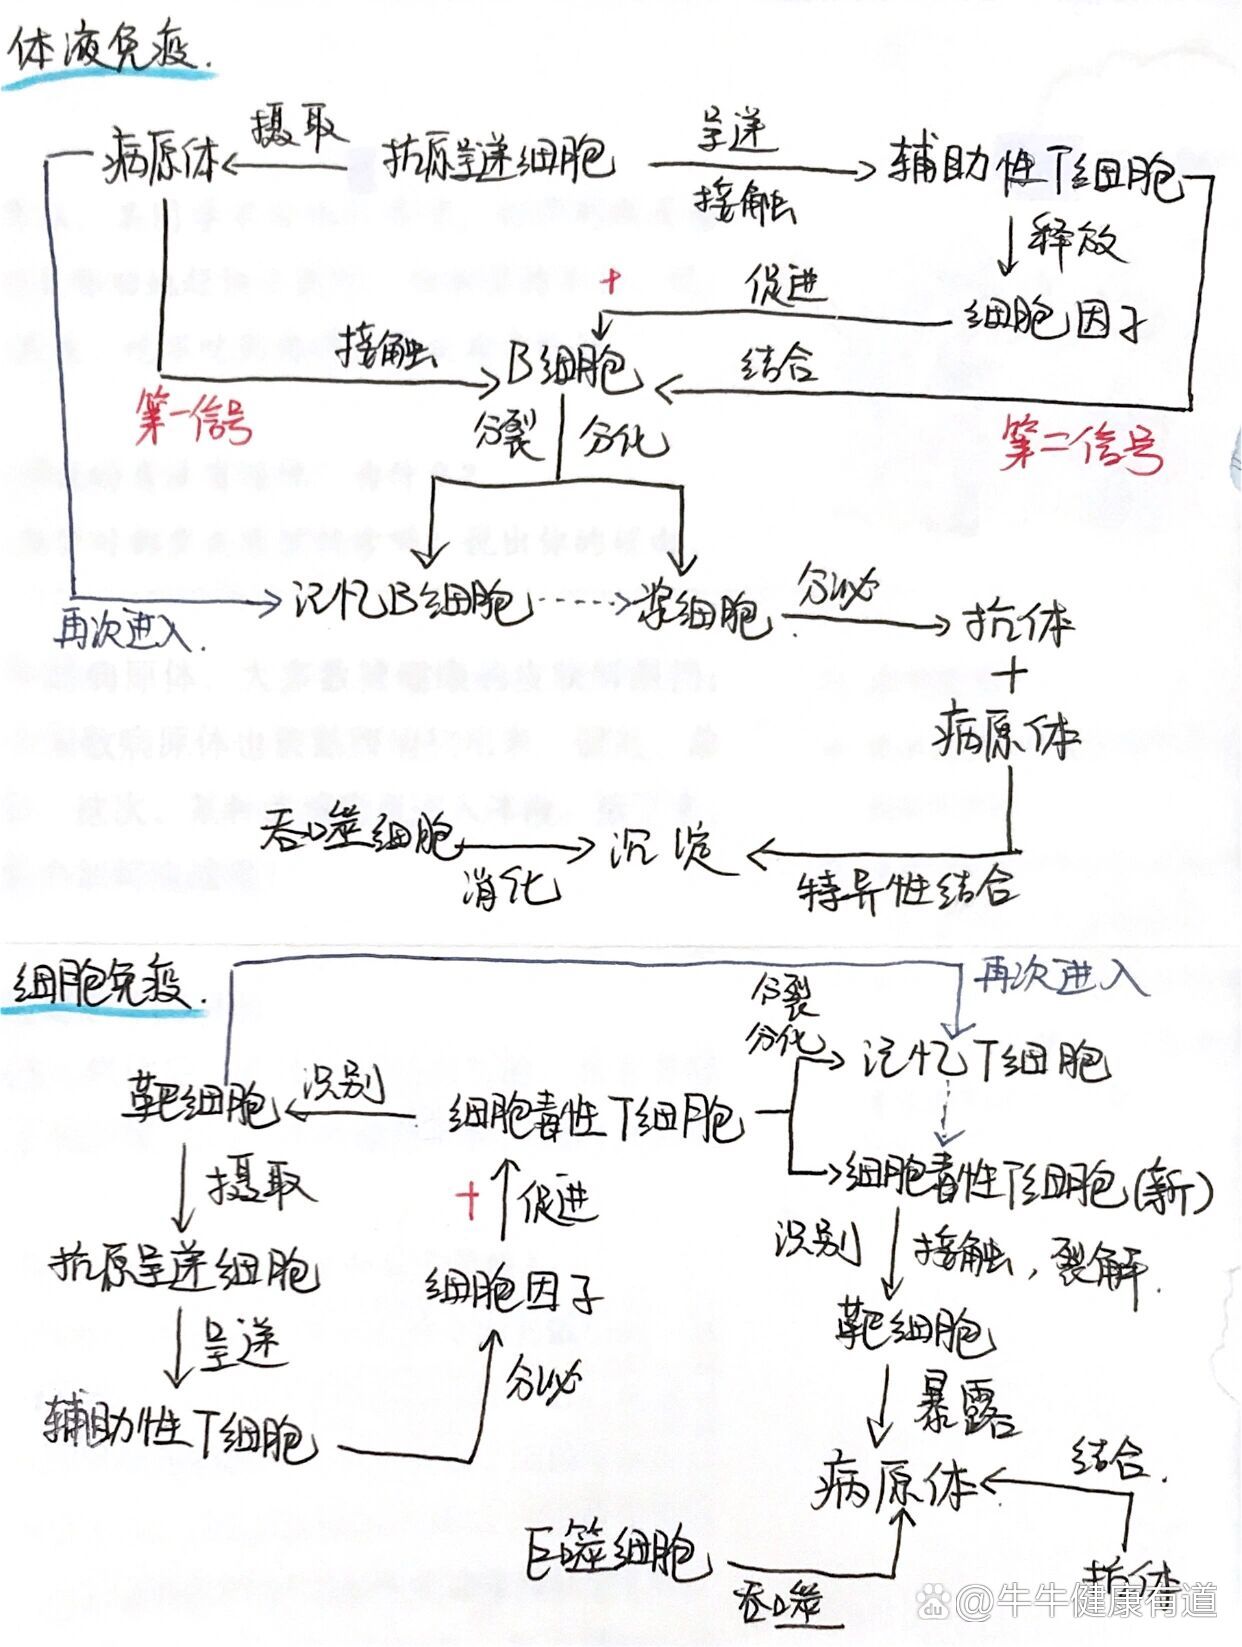 体液免疫.
摄取
呈递
病原体
抗原呈递细胞
辅助性T细胞
接触
释放
+
促进
细胞因子
接触
B细胞
结合
第一信号
分裂
分化
第二信号
记忆B细胞
浆细胞
分泌
抗体
再次进入.
+
病原体
吞噬细胞
沉淀
消化
特异性结合
细胞免疫.
再次进入
分裂
分化
记忆T细胞
靶细胞
识别
细胞毒性T细胞
摄取
+
促进
细胞毒性T细胞(新)
识别
接触,裂解.
抗原呈递细胞
细胞因子
靶细胞
呈递
分泌
暴露
辅助性T细胞
结合.
病原体.
巨噬细胞
吞噬
抗体
@牛牛健康有道